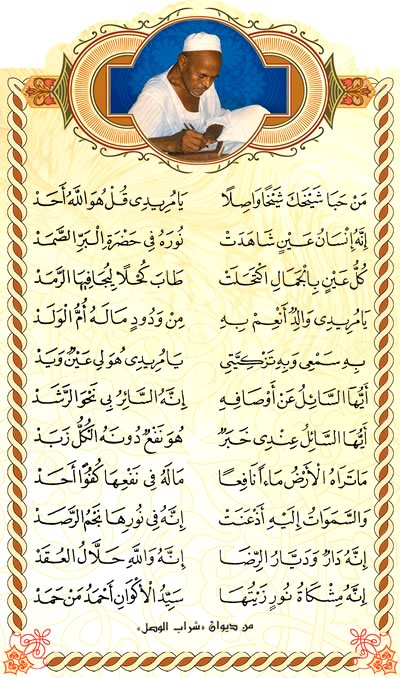 مَنْ حَبَا شَيْخَكَ شَيْخًا وَاصِلًا يَا مُرِيدِى قُلْ هُوَ اللَّهُ أَحَدْ
إِنَّهُ إِنْسَانُ عَيْنٍ شَاهَدَتْ نُورَهُ فِى حَضْرَةِ الْبَرِّ الصَّمَدْ
كُلُّ عَيْنٍ بِالْجَمَالِ اكْتَحَلَتْ طَابَ كُحْلًا لِيُجَافِيهَا الرَّمَدْ
يَا مُرِيدِى وَالِدٌ أَنْعِمْ بِهِ مِنْ وَدُودٍ مَالَهُ أُمُّ الْوَلَدْ
بِهِ سَمْعِى وَبِهِ تَزْكِيَتِى يَا مُرِيدِى هُوَ لِى عَيْنٌ وَيَدْ
أَيُّهَا السَّائِلُ عَنْ أَوْصَافِهِ إِنَّهُ السَّائِرُ بِى نَحْوَ الرَّشَدْ
أَيُّهَا السَّائِلُ عِنْدِى خَبَرٌ هُوَ نَفْعٌ دُونَهُ الْكُلُّ زَبَدْ
مَا تَرَاهُ الْأَرْضُ مَاءً نَافِعًا مَالَهُ فِى نَفْعِهَا كُفُوًا أَحَدْ
وَالسَّمَوَاتُ إِلَيْهِ أَذْعَنَتْ إِنَّهُ فِى نُورِهَا نَجْمُ الرَّصَدْ
إِنَّهُ دَارٌ وَدَيَّارُ الرِّضَا إِنَّهُ وَاللَّهِ حَلَّالُ الْعُقَدْ
إِنَّهُ مِشْكَاةُ نُورٍ زَيْتُهَا سَيِّدُ الْأَكْوَانِ أَحْمَدُ مَنْ حَمَدْ
من ديوان «شراب الوصل»